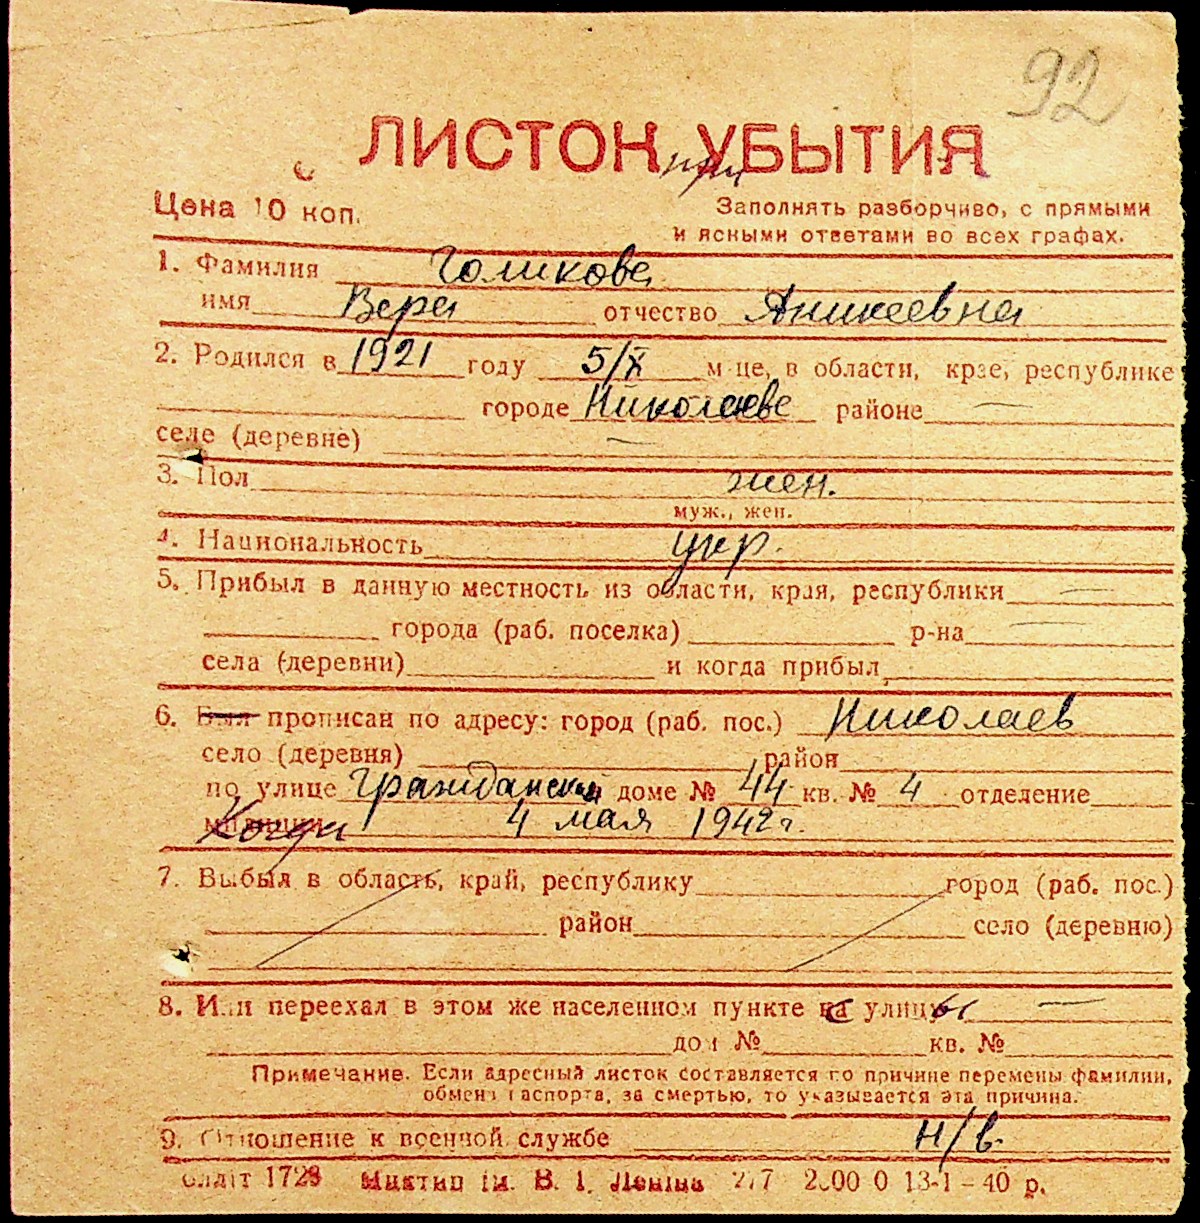 92
ЛИСТОК УБЫТИЯ
при
Цена 10 коп.
Заполнять разборчиво, с прямыми
и ясными ответами во всех графах.
1. Фамилия Голикова
имя Вера отчество Аникеевна
2. Родился в 1921 году 5/X м-це, в области, крае, республике
городе Николаеве районе —
селе (деревне) —
3. Пол жен.
муж., жен.
4. Национальность укр.
5. Прибыл в данную местность из области, края, республики —
города (раб. поселка) р-на —
села (деревни) и когда прибыл
6. Был прописан по адресу: город (раб. пос.) Николаев
село (деревня) район
по улице Гражданской доме № 44 кв. № 4 отделение
милиции Когда 4 мая 1942 г.
7. Выбыл в область, край, республику город (раб. пос.)
район село (деревню)
8. Или переехал в этом же населенном пункте с улицы —
дом № кв. №
Примечание. Если адресный листок составляется по причине перемены фамилии,
обмена паспорта, за смертью, то указывается эта причина.
9. Отношение к военной службе н/в.
1728 Миктип ім. В. І. Леніна 217 13-1-40 р.